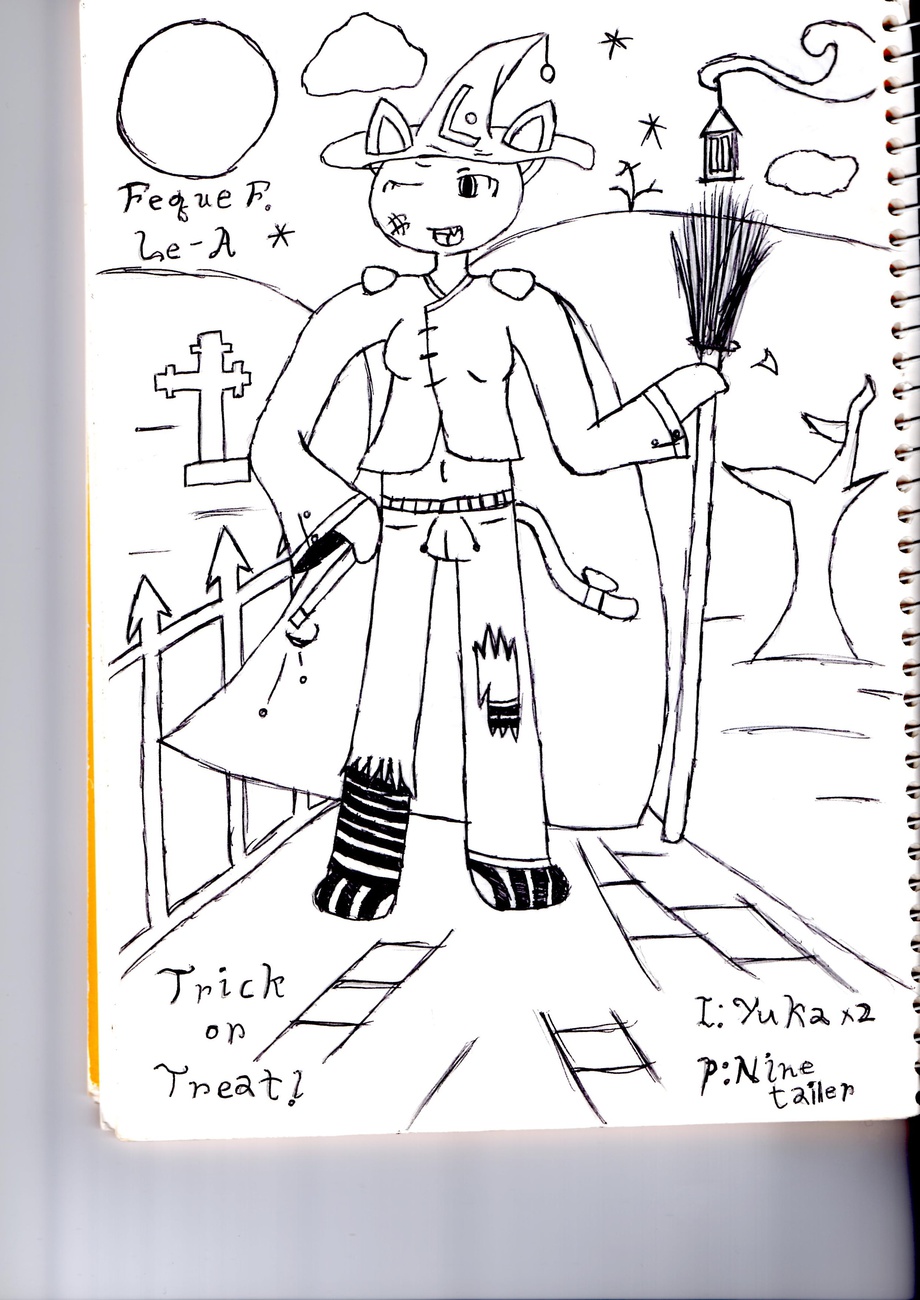 Feque F.
Le-A
Trick
or
Treat!
I: Yuka x2
P: Nine
tailer